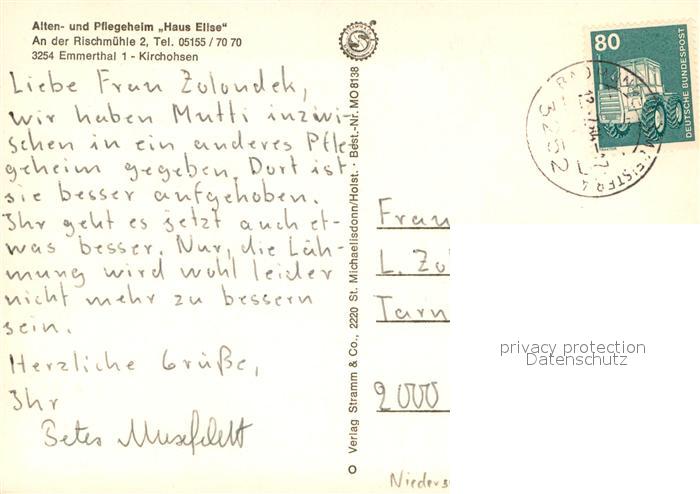 Alten- und Pflegeheim „Haus Elise"
An der Rischmühle 2, Tel. 05155 / 70 70
3254 Emmerthal 1 - Kirchohsen
Liebe Frau Zoloudek,
wir haben Mutti inzwi-
schen in ein anderes Pfle-
geheim gegeben. Dort ist
sie besser aufgehoben.
Ihr geht es jetzt auch et-
was besser. Nur, die Läh-
mung wird wohl leider
nicht mehr zu bessern
sein.
Herzliche Grüße,
Ihr
Peter
© Verlag Stramm & Co., 2220 St. Michaelisdonn/Holst. · Best.-Nr. MO 8138
80
DEUTSCHE BUNDESPOST
3252
Frau
L. Zo
Tarn
2000
privacy protection
Datenschutz
Nieders